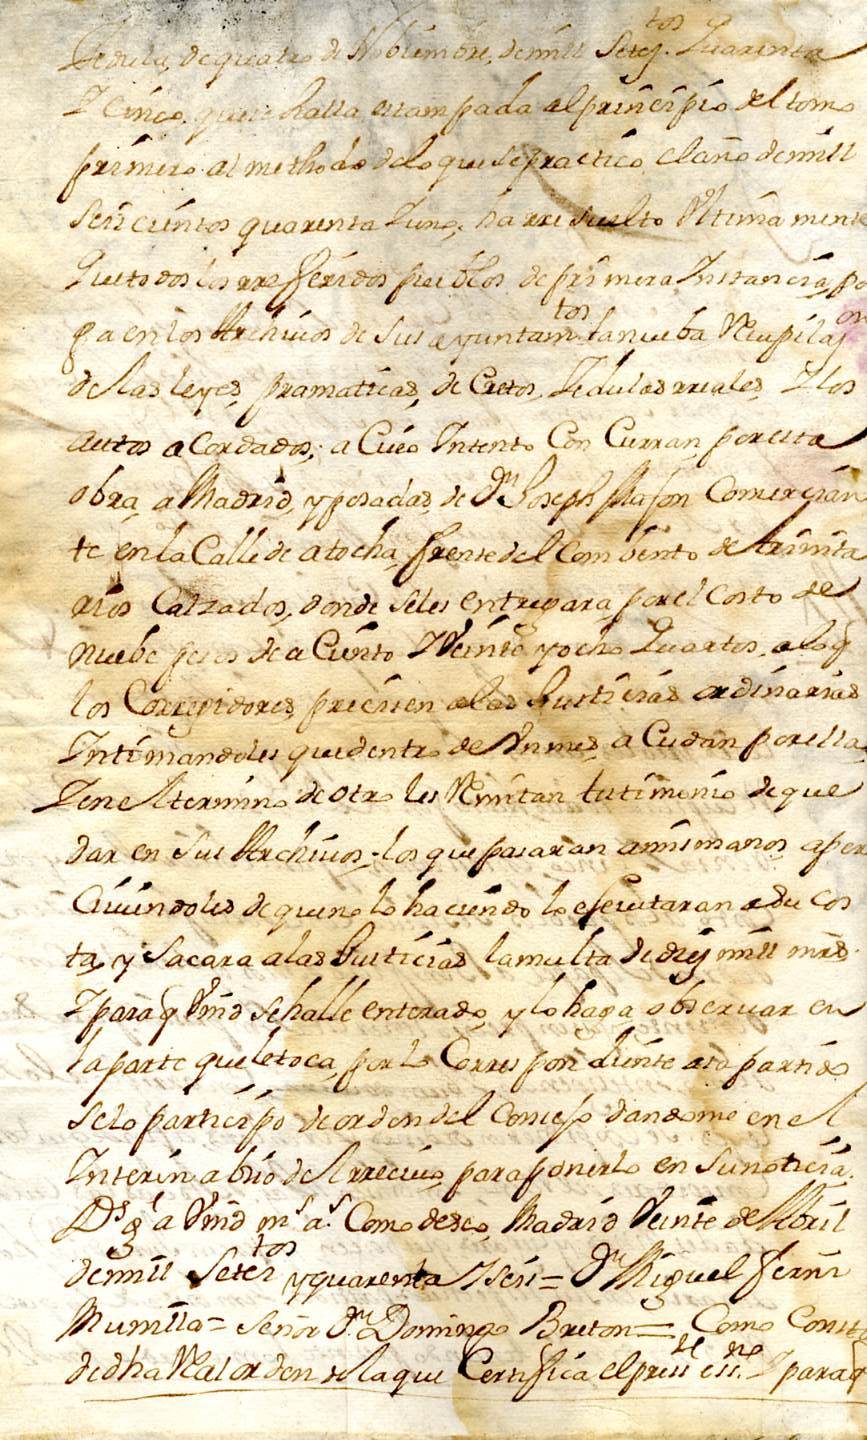 Zedula, de quatro de Nobiembre, de mill Setez.tos Quarenta
Y cinco que se halla estampada al principio del tomo
primero al methodo de lo que se practico el año de mill
seiscientos quarenta Y uno, ha rresuelto Ultimamente
Que todos los rreferidos pueblos de primera Instancia, po
ga en los Archivos de sus ayuntam.tos la nueba Recupilaz.on
de las leyes, pramaticas, de Cretos, Zedulas rreales, Y los
autos acordados, a Cuio Intento Con Curran, por esta
obra, a Madrid, y posadas, de D.n Joseph Comercian
te en la Calle de atocha, frente del Combento de trinita
rios Calzados, donde se les entregara, por el costo de
nuebe pesos de a Ciento Y Veinte y ocho Quartos, a lo q
los Corregidores, precissen a las Justicias ordinarias
Intimandoles que dentro de Un mes, a Cudan por ella,
Y en el termino de otro les Remitan testimonio de que
dar en sus Archivos, los que pasaran a mis manos, aper
Civiendoles de que no lo haciendo lo esecutaran a Su Cos
ta, y Sacara a las Justicias la multa de diez mill mrs.
Y para q Vmd se halle enterado, y lo haga observar en
la parte que le toca, por lo Correspondiente a ese partido
se lo participo de orden del Consejo dandome en el
Interin abiso del rrecivo, para ponerlo en su noticia.
D.s g.e a Vmd m.s a.s Como deseo, Madrid Veinte de Abril
de mill Setez.tos y quarenta Y seis = D.n Miguel Fernz
Munilla = Señor D.n Domingo Breton = Como Consta
de dha Real orden de la que Certifica el press.te ess.no Y para q